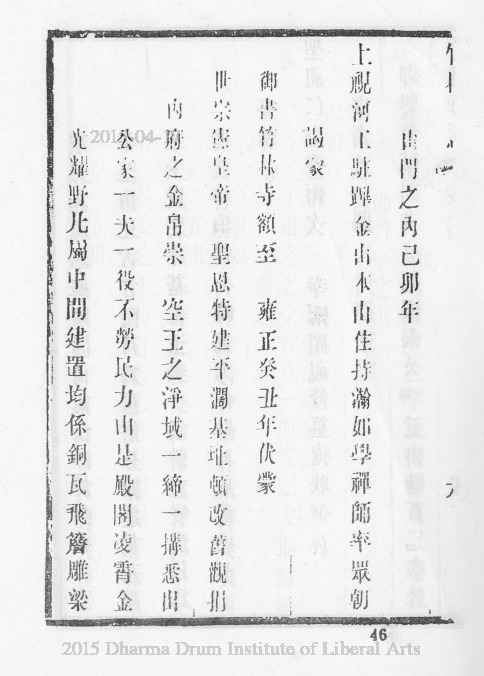 山門之內己卯年
上視河工駐蹕金山本山住持瀚如學禪師率眾朝
謁蒙
御書竹林寺額至 雍正癸丑年伏蒙
世宗憲皇帝 聖恩特建平濶基址頓改舊觀捐
內府之金帛崇 空王之淨域一締一搆悉出
公家一夫一役不勞民力由是殿閣凌霄金
光耀野凡屬中間建置均係銅瓦飛簷雕梁
九
46
2015 Dharma Drum Institute of Liberal Arts